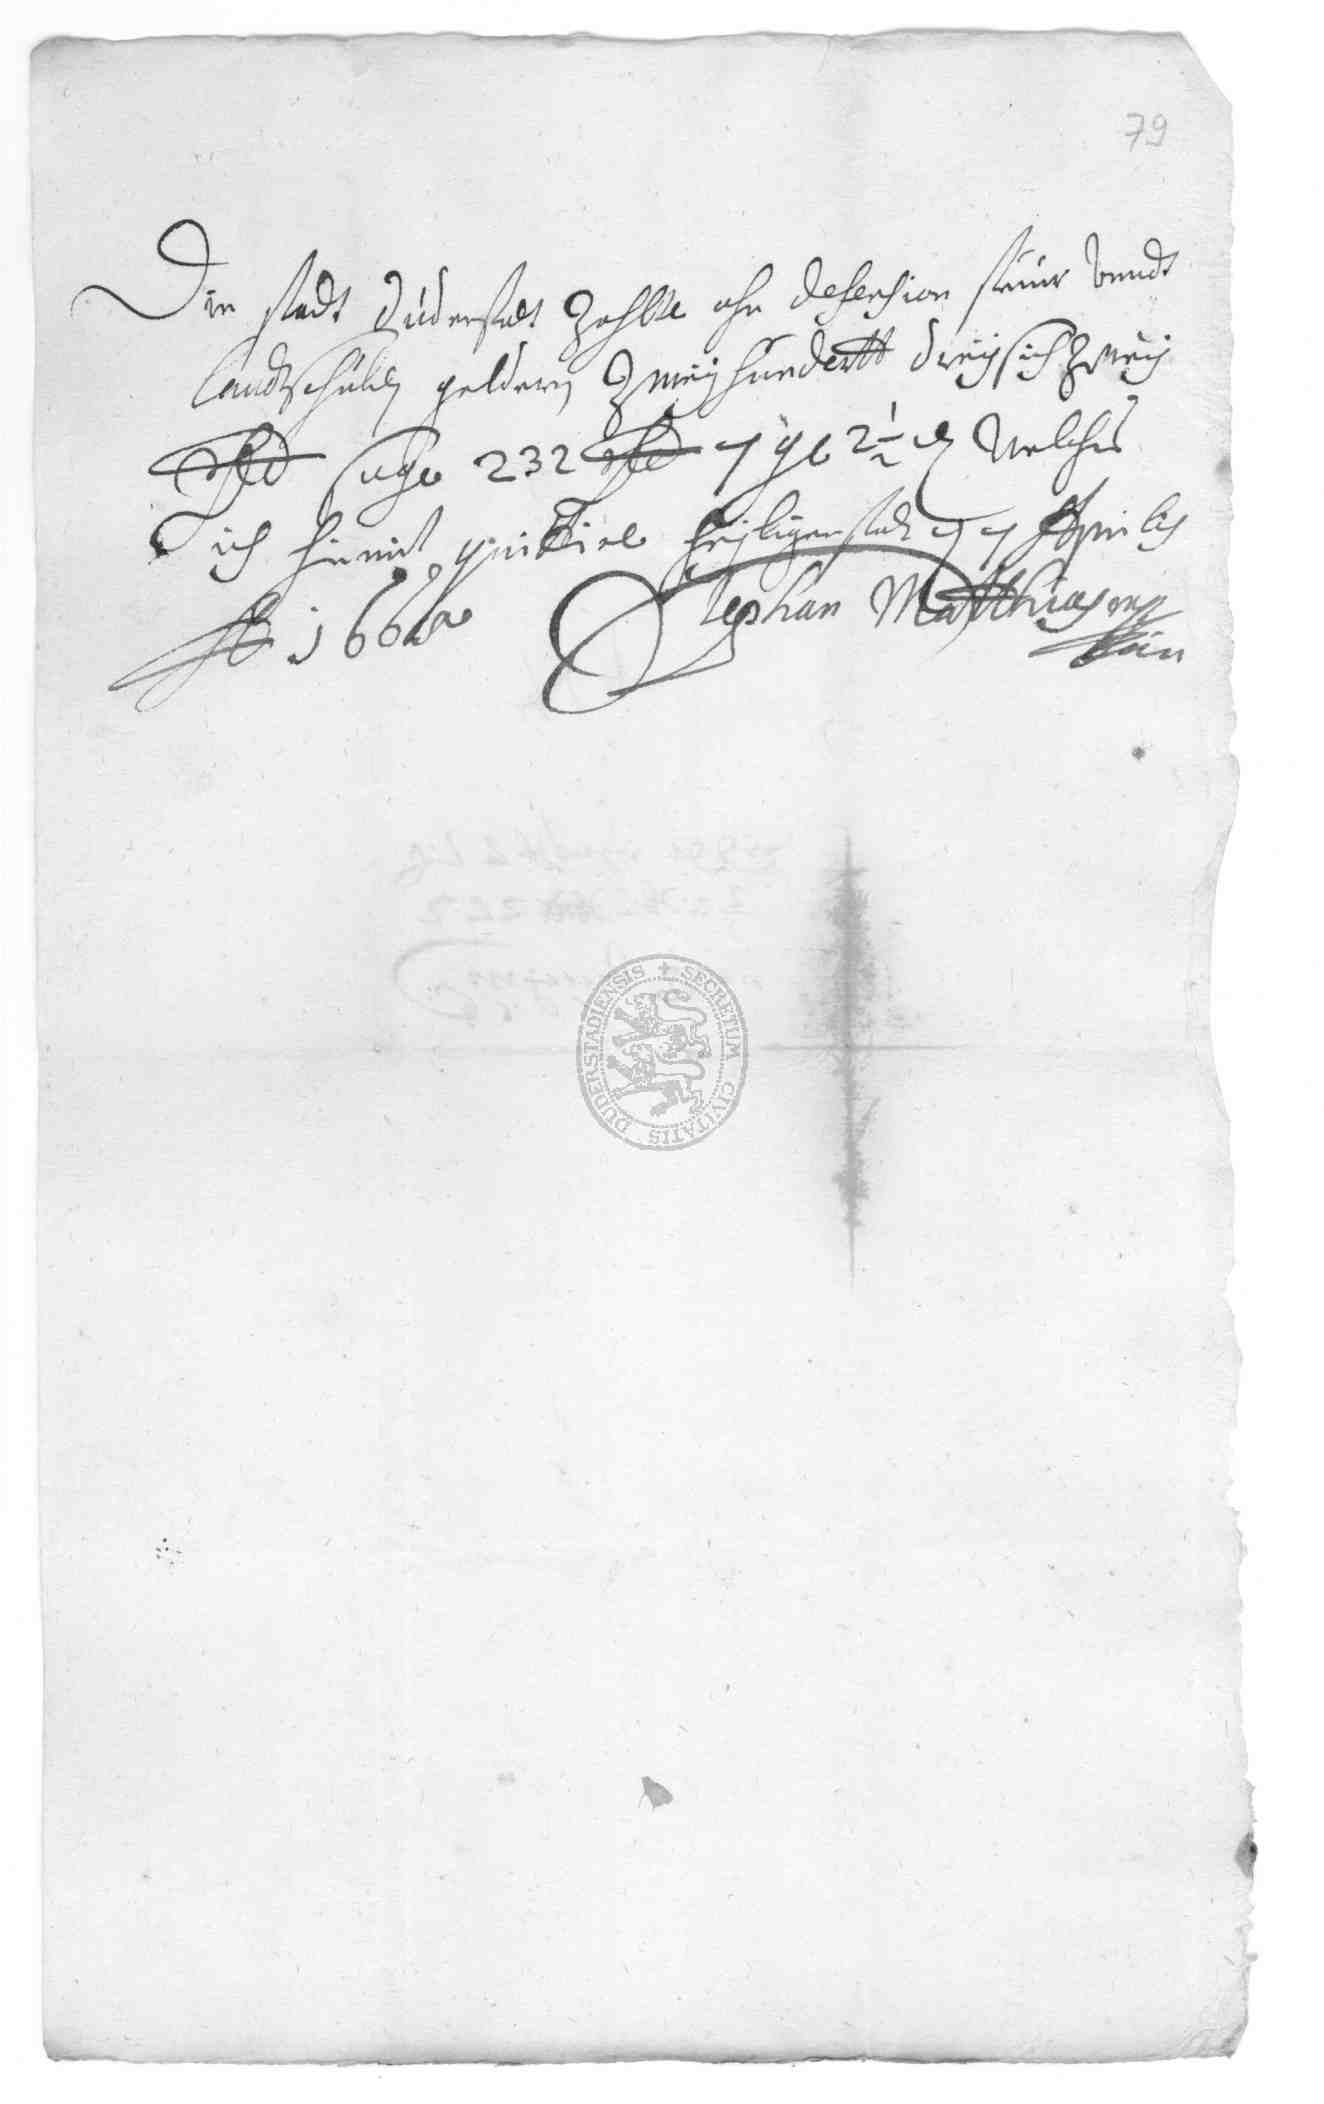 79
Die stadt Duderstadt Zahlte ahn defension steuer vnndt
landtschulden geldern Zweyhundertt dreysich Zwey
sage 232 7 gl 2 1/2 Welches
ich hiemit quittire Heyligenstadt 7 Aprilis
Ao 1662
Stephan Matthias mp
SECRETUM CIVITATIS DUDERSTADIENSIS